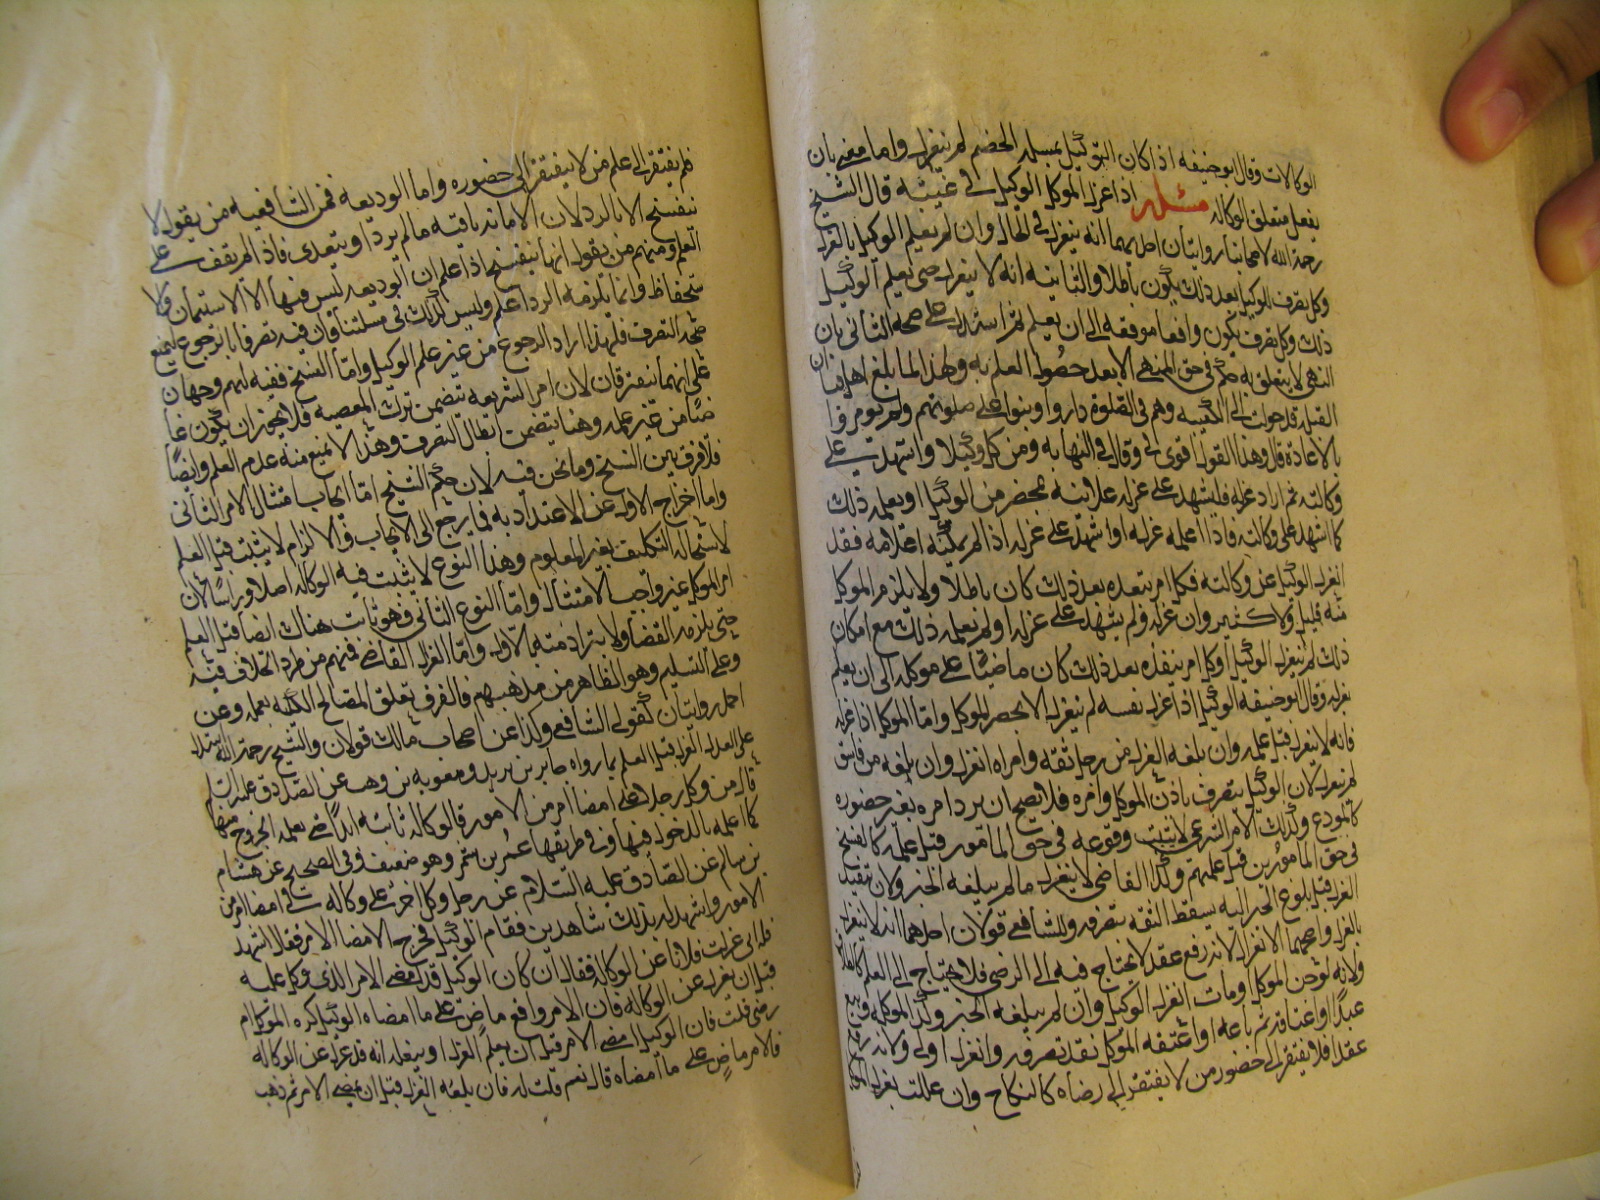 الوكالات وقال ابو حنيفه اذا كان التوكيل بمسله الخصم لم ينعزل واما معنى بان
يفعل متعلق الوكاله مسئله اذا عزل الموكل الوكيل في غيبته قال الشيخ
رحمة الله لاصحابنا روايتان احديهما انه ينعزل في الحال وان لم يعلم الوكيل بالعزل
وكل تصرف الوكيل بعد ذلك يكون باطلا والثانيه انه لا ينعزل حتى يعلم الوكيل
ذلك وكل تصرف يكون واقعا موقفه الى ان يعلم ثم استدل على صحه الثانى بان
النهى لا يتعلق به حكم في حق المنهى الا بعد حصول العلم به ولهذا لما بلغ اهل قبا ان
القبله قد حولت الى الكعبه وهم في الصلوة داروا وبنوا على صلوتهم ولم يومروا
بالاعادة قال وهذا القول اقوى وقال في النهايه ومن وكل وكيلا واشهد على
وكالته ثم اراد عزله فليشهد على عزله علانيه بمحضر من الوكيل او يعلمه ذلك
كما اشهد على وكالته فاذا اعلمه عزله او اشهد على عزله اذا لم يمكنه اعلامه فقد
انعزل الوكيل عن وكالته فكل امر ينفذه بعد ذلك كان باطلا ولا يلزم الموكل
منه قليل ولا كثير وان عزله ولم يشهد على عزله او لم يعلمه ذلك مع امكان
ذلك لم ينعزل الوكيل وكل امر ينفذه بعد ذلك كان ماضيا على موكله الى ان يعلم
بعزله وقال ابو حنيفه الوكيل اذا عزل نفسه لم ينعزل الا بحضر الموكل واما الموكل اذا عزله
فانه لا ينعزل قبل علمه وان بلغه العزل من رجل ثقه وامراه انعزل وان بلغه من فاسق
لم ينعزل لان الوكيل يتصرف باذن الموكل وامره فلا يصح ان يرد امره بغير حضوره
كالمودع وكذلك الامر الشرعى لا يثبت وقوعه في حق المامور قبل علمه كالفسخ
في حق المامورين قبل علمهم وكذا القاضى لا ينعزل ما لم يبلغه الخبر ولان تنفيذ
العزل قبل بلوغ الخبر اليه يسقط الثقه بتصرفه وللشافعي قولان احدهما انه لا ينعزل
بالعزل واصحهما الانعزال لانه رفع عقد لا يحتاج فيه الى الرضى فلا يحتاج الى العلم كالطلاق
ولانه لو جن الموكل او مات انعزل الوكيل وان لم يبلغه الخبر وكذا لو وكله في بيع
عبد او اعتاقه ثم باعه او اعتقه الموكل نفذ تصرفه وانعزل اولى ولانه رفع
عقد فلا يفتقر الى حضور من لا يفتقر الى رضاه كالنكاح وان عللت بعزل الموكل
فلم يفتقر الى علم من لا يفتقر الى حضوره واما الوديعه فمن الشافعيه من يقول لا
تنفسخ الا بالرد لان الامانه باقيه ما لم يرد او يتعدى فاذا لم تقف على
العلم ومنهم من يقول انها ينفسخ اذا علم ان الوديعه ليس فيها الا الاستيمان والا
ستحفاظ وانما يلزمه الرد اذا علم وليس كذلك في مسئلتنا فان فيه تصرفا بالرجوع ليمنع
صحه التصرف فلهذا اراد الرجوع من غير علم الوكيل واما الفسخ ففيه لهم وجهان
على انهما يفترقان لان امر الشريعه تتضمن ترك المعصيه فلا يجوز ان يكون عا
صيا من غير علمه وهنا يتضمن ابطال التصرف وهذا لا يمنع منه عدم العلم وايضا
فلا فرق بين النسخ وما نحن فيه لان حكم النسخ اما ايجاب امتثال الامر الثانى
واما اخراج الاول عن الاعتداد به فما يرجع الى الايجاب والالزام لا يثبت قبل العلم
لاستحاله التكليف بغير المعلوم وهذا النوع لا يثبت في الوكاله اصلا وراسا لان
امر الموكل غير واجب الامتثال واما النوع الثانى فهو ثابت هناك ايضا قبل العلم
حتى يلزمه القضا ولا تبرا ذمته بالاول واما انعزال القاضى فمنهم من طرد الخلاف فيه
وعلى التسليم وهو الظاهر من مذهبهم فالفرق تعلق المصالح الكليه بعمله وعن
احمد روايتان كقولى الشافعي وكذا عن اصحاب مالك قولان والشيخ رحمه الله استدل
على العدل العزل قبل العلم بما رواه جابر بن يزيد ومعويه بن وهب عن الصادق عليه السلم
قال من وكل رجلا على امضا امر من الامور فالوكاله ثابته ابدا حتى يعلمه الخروج منها
كما اعلمه بالدخول فيها وفي طريقها عمرو بن شمر وهو ضعيف وفي الصحيح عن هشام
بن سالم عن الصادق عليه السلام عن رجل وكل اخر على وكاله في امضا امر من
الامور واشهد له بذلك شاهدين فقام الوكيل فخرج لامضا الامر فقال اشهد
وا انى عزلت فلانا عن الوكاله فقال ان كان الوكيل قد امضى الامر الذى وكل عليه
قبل ان يعزل عن الوكاله فان الامر واقع ماض على ما امضاه الوكيل كره الموكل ام
رضى قلت فان الوكيل امضى الامر قبل ان يعلم العزل او يبلغه انه قد عزل عن الوكاله
فالامر ماض على ما امضاه قال نعم قلت له فان بلغه العزل قبل ان يمضى الامر ثم ذهب